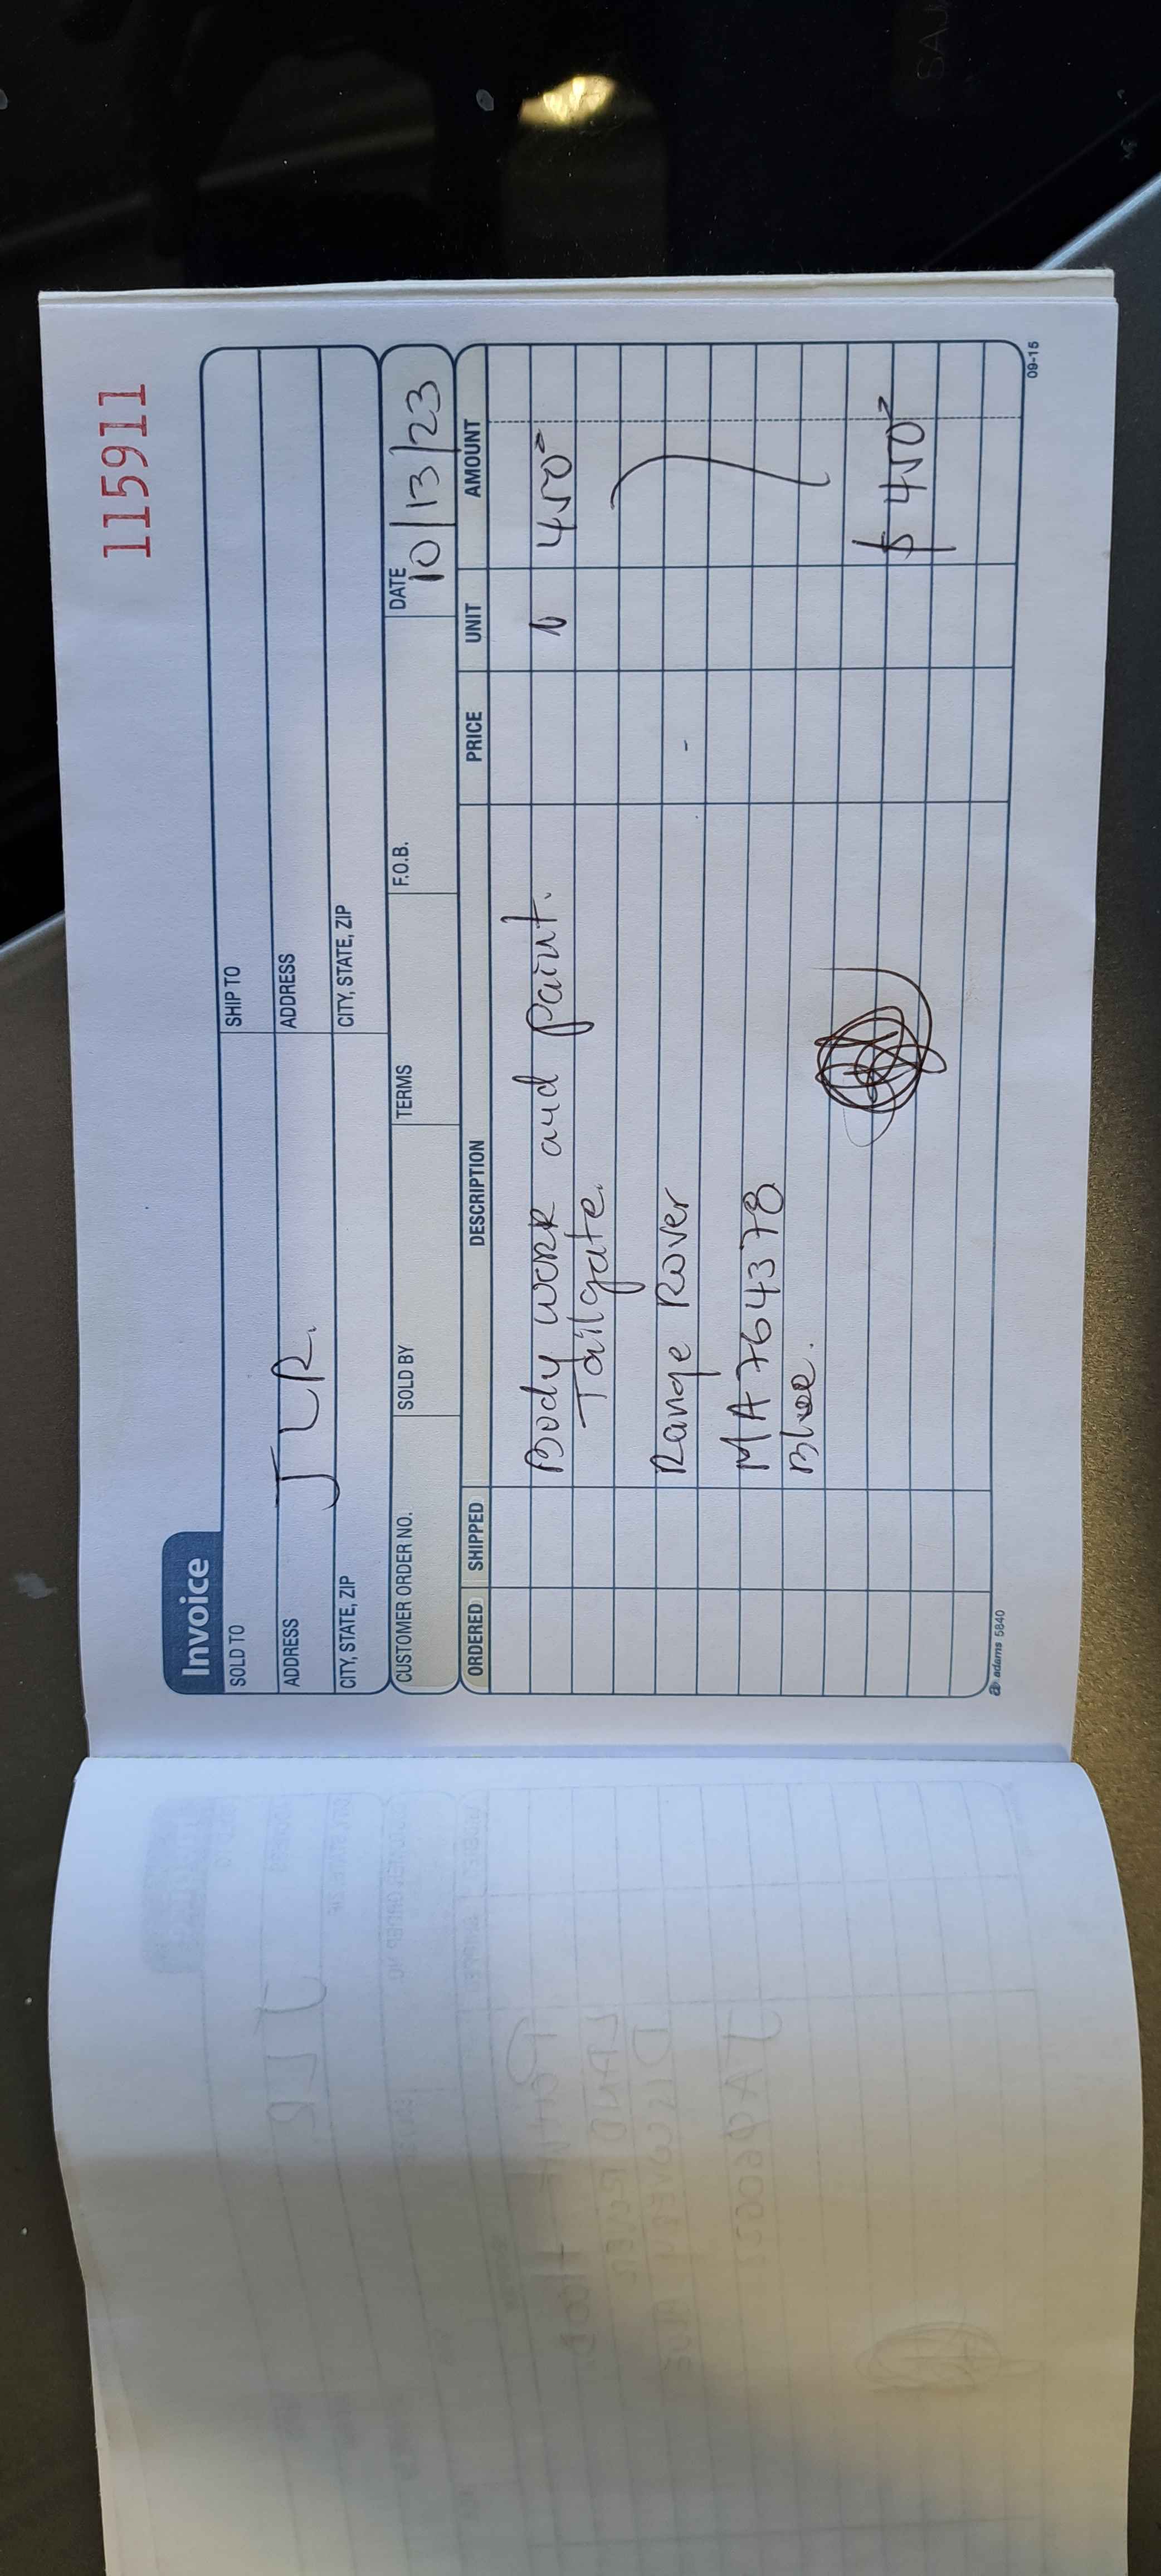 115911
Invoice
SOLD TO
SHIP TO
ADDRESS
JLR.
ADDRESS
CITY, STATE, ZIP
CITY, STATE, ZIP
CUSTOMER ORDER NO.
SOLD BY
TERMS
F.O.B.
DATE
10/13/23
ORDERED
SHIPPED
DESCRIPTION
PRICE
UNIT
AMOUNT
Body work and paint.
450
Tailgate.
Range Rover
MA 764378
Blue.
$ 450
adams 5840
09-15